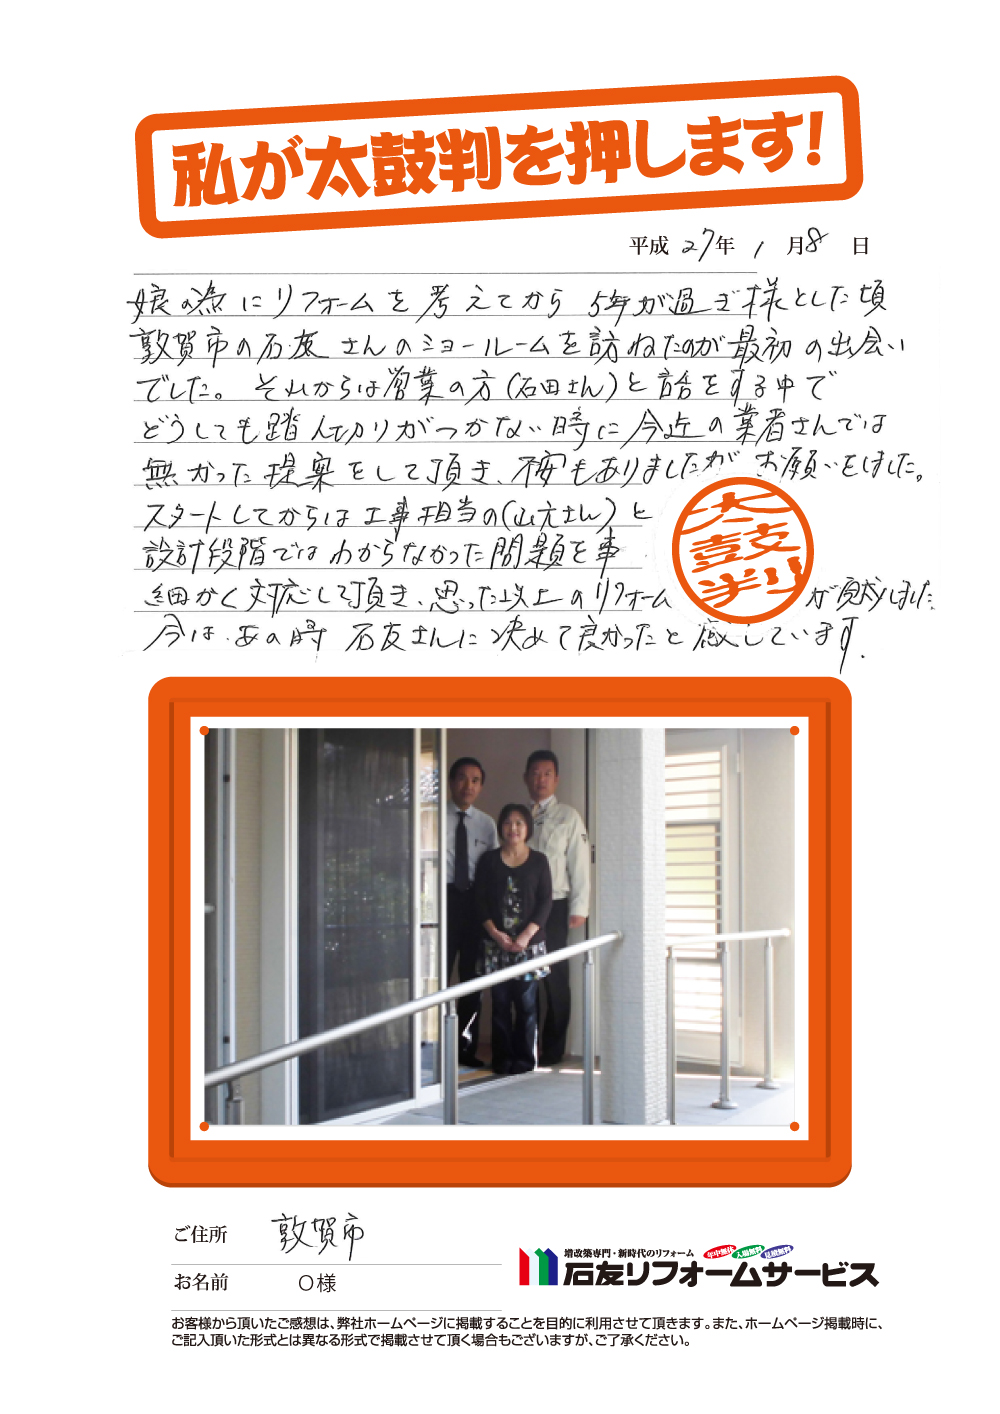 私が太鼓判を押します!
平成 27年 1 月8 日
娘の為にリフォームを考えてから5年が過ぎ様とした頃
敦賀市の石友さんのショールームを訪ねたのが最初の出会い
でした。それからは営業の方(石田さん)と話をする中で
どうしても踏ん切りがつかない時に今近の業者さんでは
無かった提案をして頂き、不安もありましたがお願いをしました。
スタートしてからは工事担当の(山元さん)と
設計段階ではわからなかった問題を事
細かく対応して頂き、思った以上のリフォーム が完成しました
太鼓判
今は、あの時 石友さんに決めて良かったと感しています.
ご住所 敦賀市
お名前 O様
増改築専門・新時代のリフォーム
年中無休 入場無料 見積無料
石友リフォームサービス
お客様から頂いたご感想は、弊社ホームページに掲載することを目的に利用させて頂きます。また、ホームページ掲載時に、
ご記入頂いた形式とは異なる形式で掲載させて頂く場合もございますが、ご了承ください。